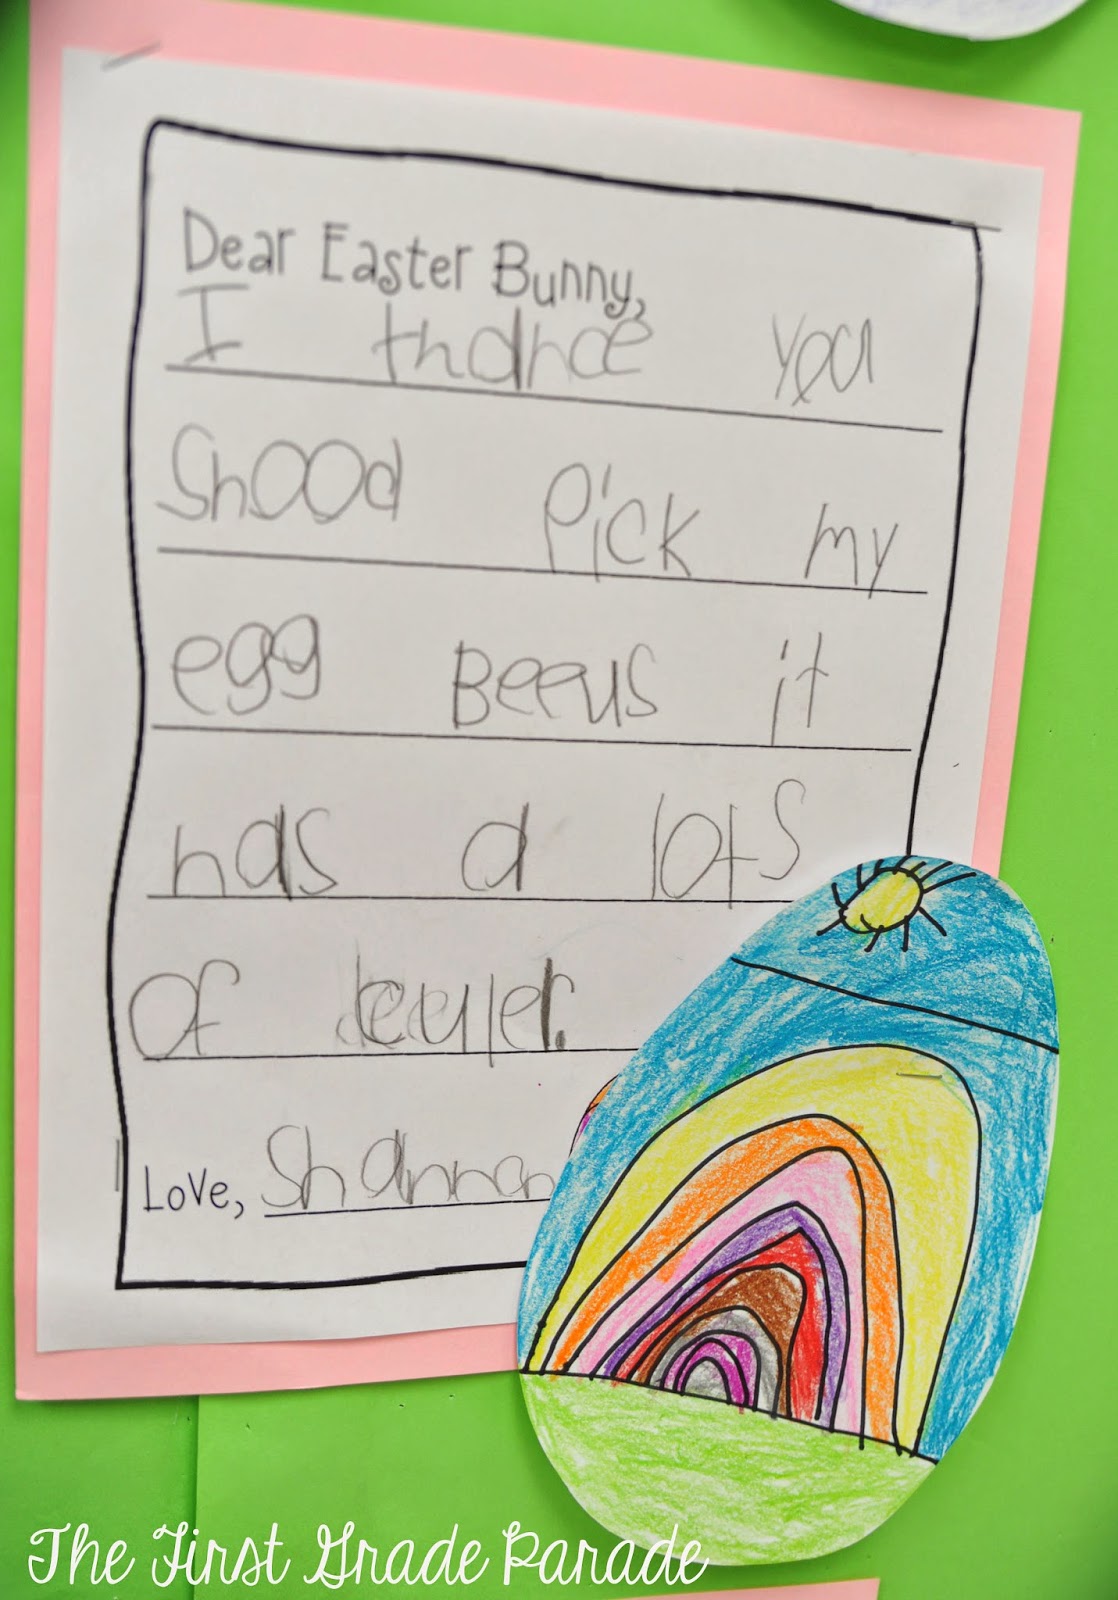 Dear Easter Bunny,
I thance you
shood Pick my
egg Beeus it
has a lots
of
Love, Shannan
The First Grade Parade